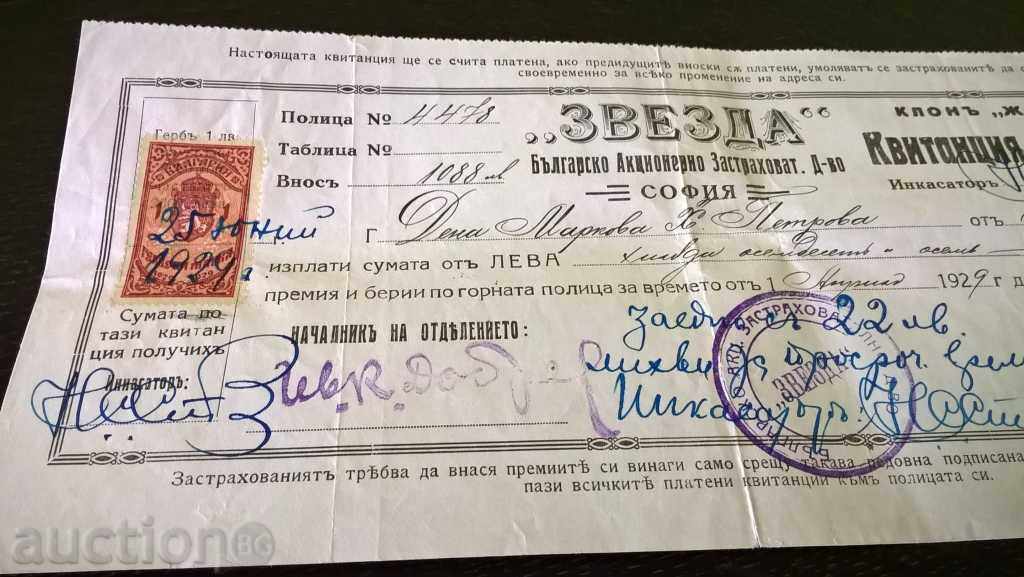 Настоящата квитанция ще се счита платена, ако предидущитѣ вноски сѫ платени, умоляватъ се застрахованитѣ да
своевременно за всѣко променение на адреса си.
Гербъ 1 лв.
Полица № 4478
Таблица №
Вносъ 1088 лв
„ЗВЕЗДА“
Българско Акционевно Застраховат. Д-во
СОФИЯ
КЛОНЪ „Ж
Квитанция
Инкасаторъ
25 юний
1929 г.
Г Дена Маркова Х. Петрова отъ
изплати сумата отъ ЛЕВА хиляда осемдесетъ и осемь
премия и берии по горната полица за времето отъ 1 Априлъ 1929 г
Сумата по
тази квитан
ция получихъ
Инкасаторъ:
НАЧАЛНИК НА ОТДѢЛЕНИЕТО:
Заедно съ 22 лв.
лихви за просроч.
Инкасаторъ:
Застрахованиятъ трѣбва да внася премиитѣ си винаги само срещу такава редовна подписана
пази всичкитѣ платени квитанции къмъ полицата си.
auction BG